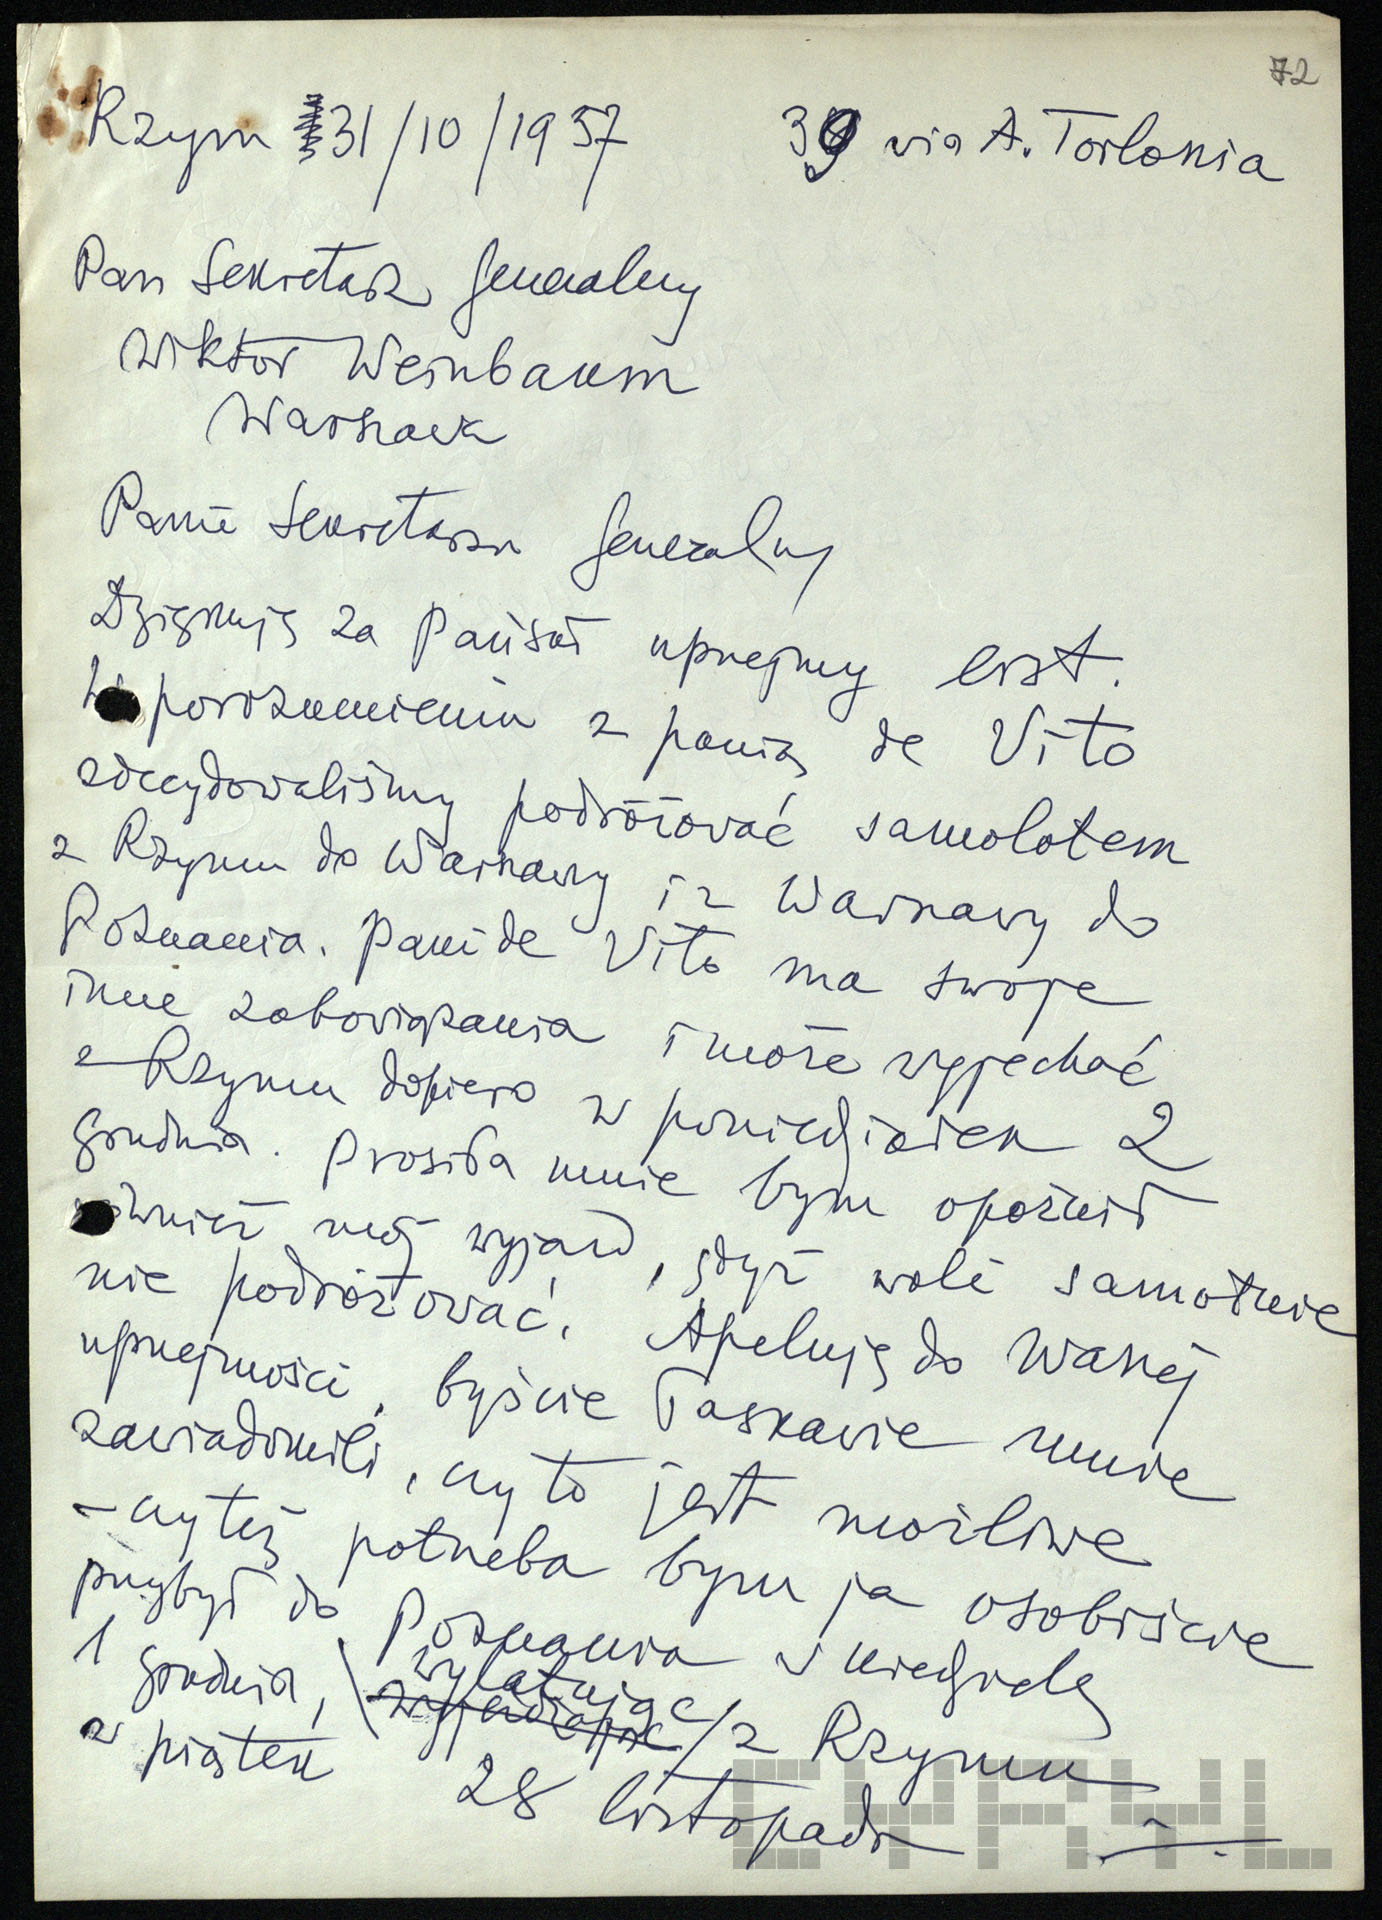 72
Rzym 31/10/1957 39 via A. Torlonia
Pan Sekretarz Generalny
Wiktor Weinbaum
Warszawa
Panie Sekretarzu Generalny
Dziękuję za Pański uprzejmy list.
W porozumieniu z panią de Vito
zdecydowaliśmy podróżować samolotem
z Rzymu do Warszawy i z Warszawy do
Poznania. Pani de Vito ma swoje
inne zobowiązania i może wyjechać
z Rzymu dopiero w poniedziałek 2
grudnia. Prosiła mnie bym opóźnił
również mój wyjazd, gdyż woli samotnie
nie podróżować. Apeluję do Waszej
uprzejmości, byście łaskawie mnie
zawiadomili, czy to jest możliwe
– czy też potrzeba bym ja osobiście
przybył do Poznania w niedzielę
1 grudnia, wylatując z Rzymu
w piątek 28 listopada
CYRYL